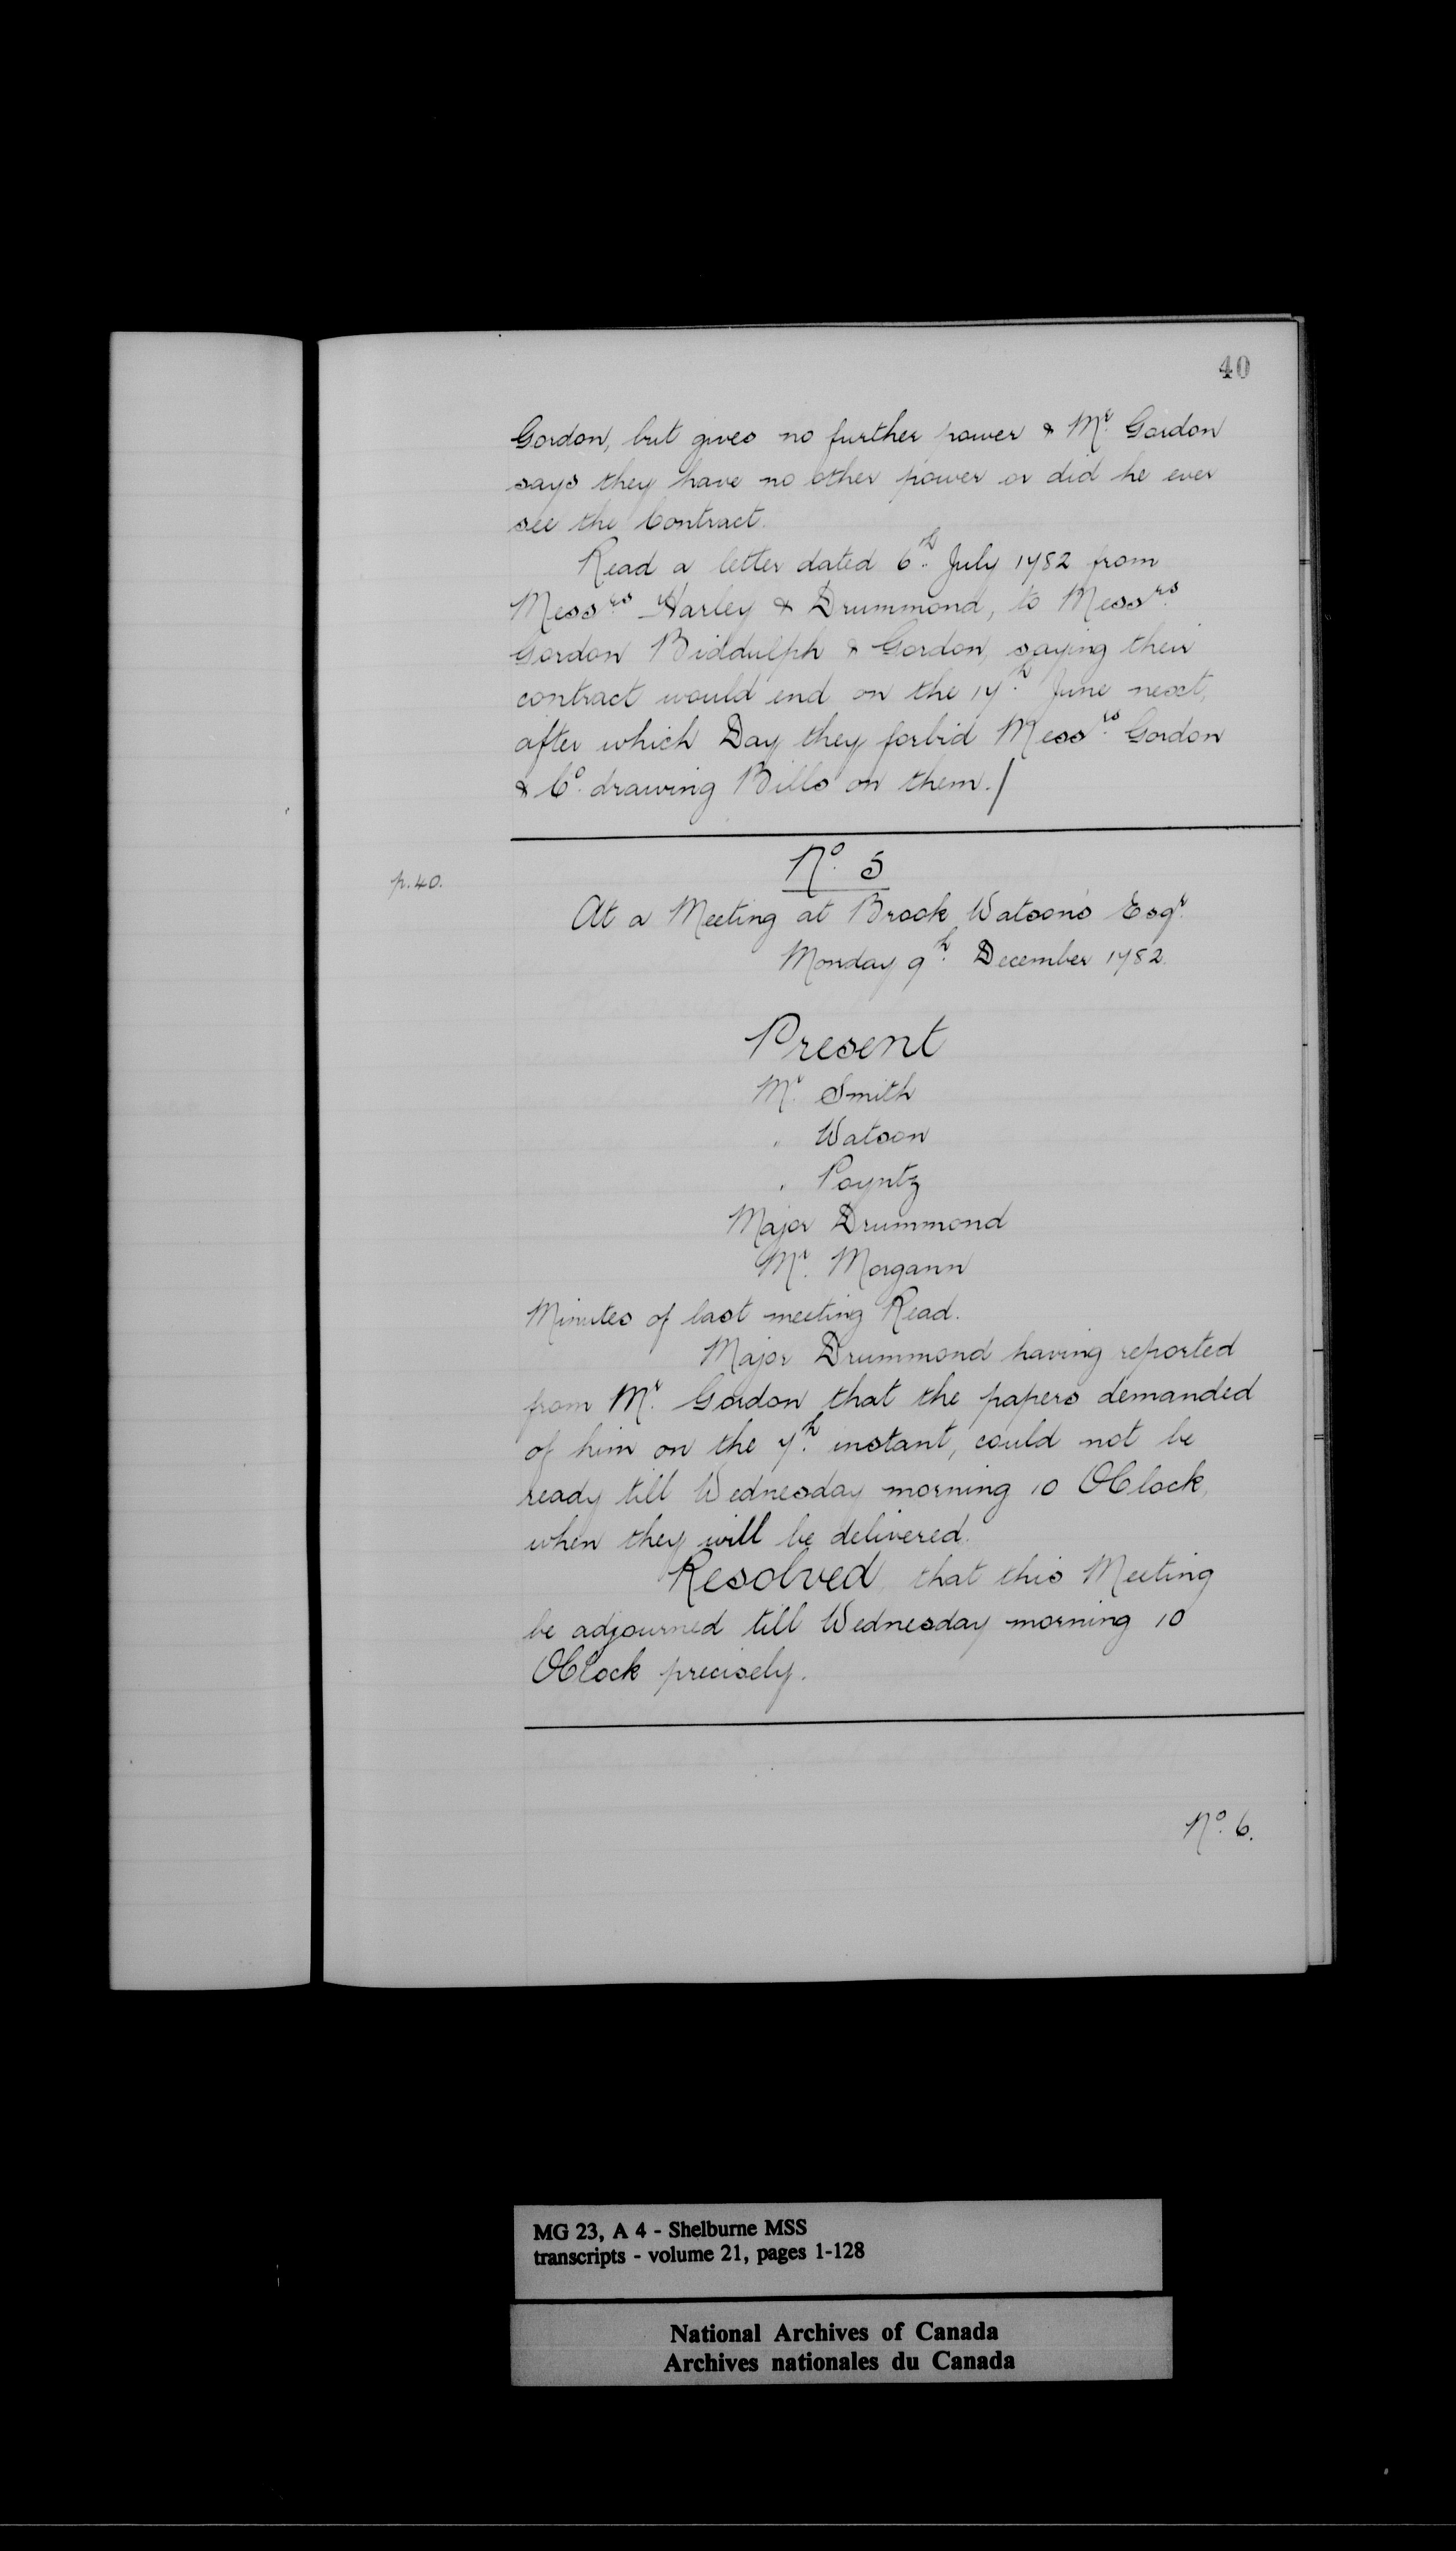 40
Gordon, but gives no further power & Mr. Gordon
says they have no other power or did he ever
see the Contract.
Read a letter dated 6th. July 1782 from
Messrs. Harley & Drummond, to Messrs.
Gordon Biddulph & Gordon, saying their
contract would end on the 17th. June next,
after which Day they forbid Messrs. Gordon
& Co. drawing Bills on them./
No. 5
p. 40.
At a Meeting at Brook Watson's Esqr.
Monday 9th. December 1782.
Present
Mr. Smith
" Watson
" Poyntz
Major Drummond
Mr. Morgann
Minutes of last meeting Read.
Major Drummond having reported
from Mr. Gordon that the papers demanded
of him on the 7th. instant, could not be
ready till Wednesday morning 10 OClock,
when they will be delivered.
Resolved, that this Meeting
be adjourned till Wednesday morning 10
OClock precisely.
No. 6.
MG 23, A 4 - Shelburne MSS
transcripts - volume 21, pages 1-128
National Archives of Canada
Archives nationales du Canada